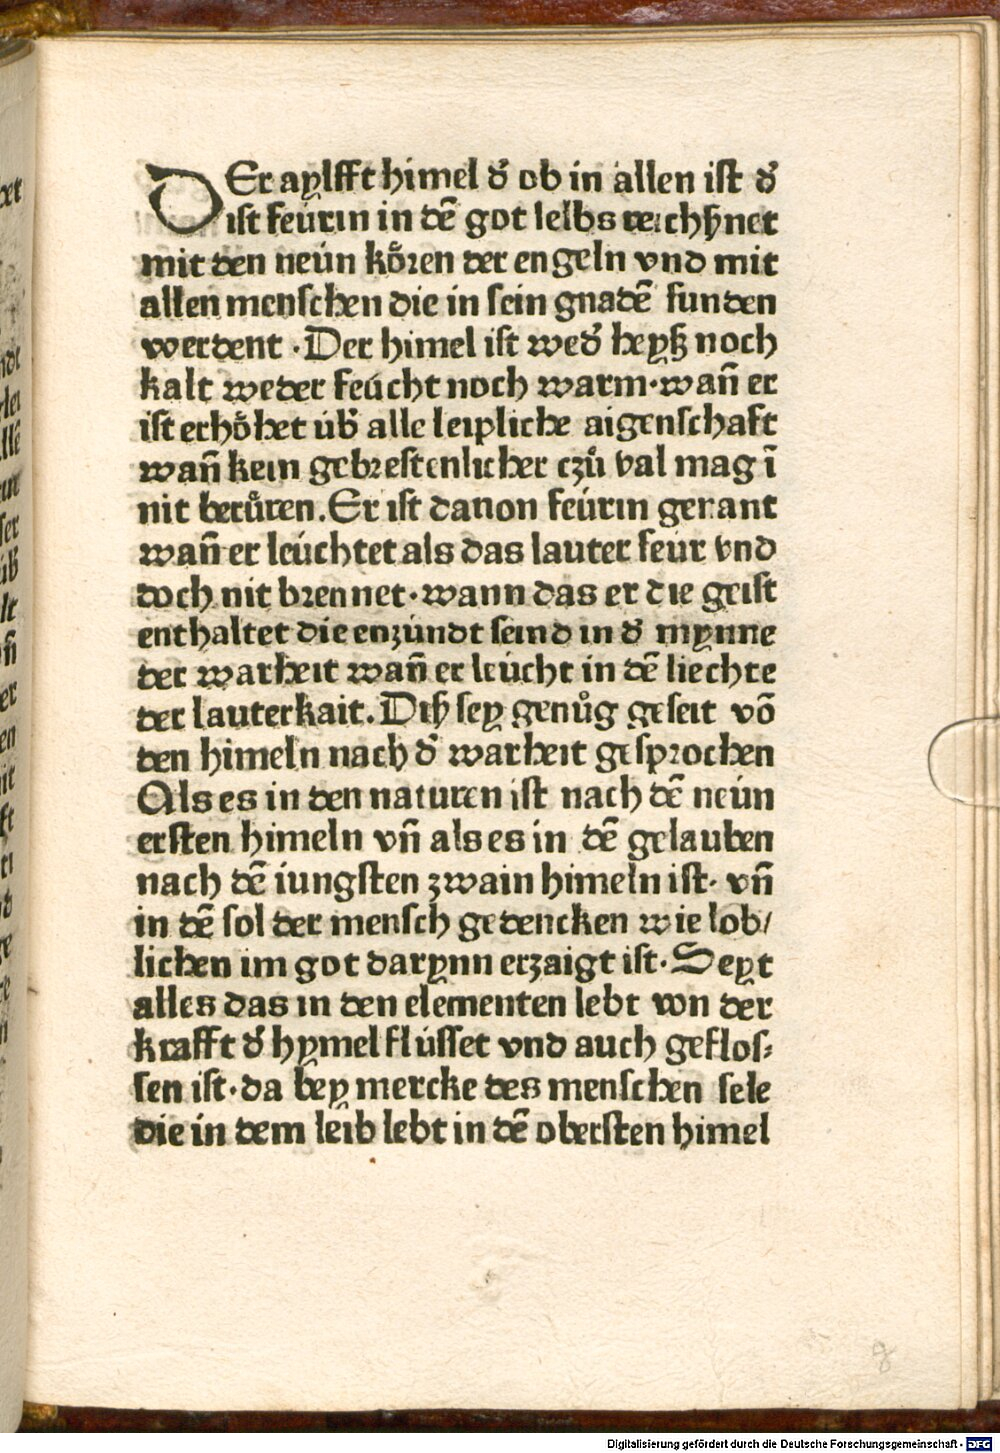 DEr aylfft himel d̕ ob in allen ist d̕
ist feúrin in dē got selbs reichßnet
mit den neún koͤren der engeln vnd mit
allen menschen die in sein gnadē funden
werdent ·Der himel ist wed̕ heyß noch
kalt weder feúcht noch warm·wañ er
ist erhoͤhet úb̕ alle leipliche aigenschaft
wañ kein gebrestenlicher czuͦ val mag ī
nit beruͤren.Er ist dauon feúrin genant
wañ er leúchtet als das lauter feúr vnd
doch nit brennet·wann das er die geist
enthaltet die enzúndt seind in d̕ mynne
der warheit wañ er leúcht in dē liechte
der lauterkait.Diß sey genuͦg geseit võ
den himeln nach d̕ warheit gesprochen
Als es in den naturen ist nach dē neún
ersten himeln vñ als es in dē gelauben
nach dē iungsten zwain himeln ist· vñ
in dē sol der mensch gedencken wie lob/
lichen im got darynn erzaigt ist·Seyt
alles das in den elementen lebt von der
krafft d̕ hymel flússet vnd auch geflos⸗
sen ist·da bey mercke des menschen sele
die in dem leib lebt in dē obersten himel
8
Digitalisierung gefördert durch die Deutsche Forschungsgemeinschaft - DFG